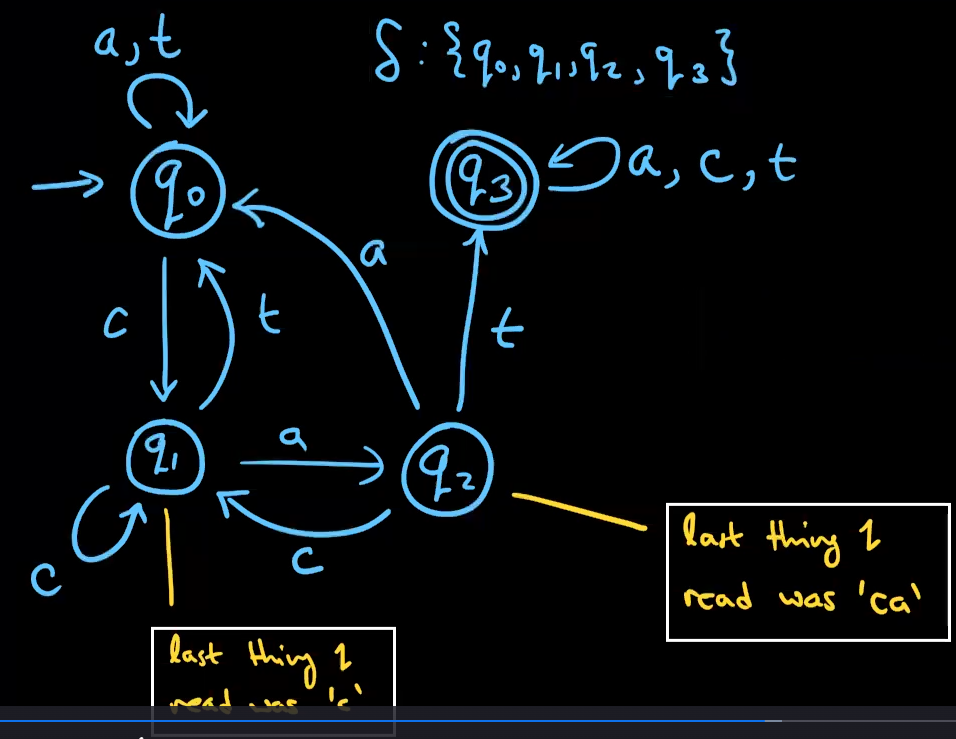 a,t
δ:{q0,q1,q2,q3}
q0
q3
a, c, t
a
c
t
t
q1
a
q2
c
c
last thing I
read was 'ca'
last thing I
read was 'c'